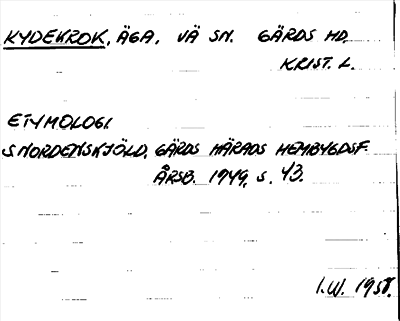 KYDEKROK, ÄGA, VÄ SN. GÄRDS HD.
KRIST. L.
ETYMOLOGI.
S. NORDENSKJÖLD, GÄRDS HÄRADS HEMBYGDSF.
ÅRSB. 1949, s. 43.
I.W. 1958.